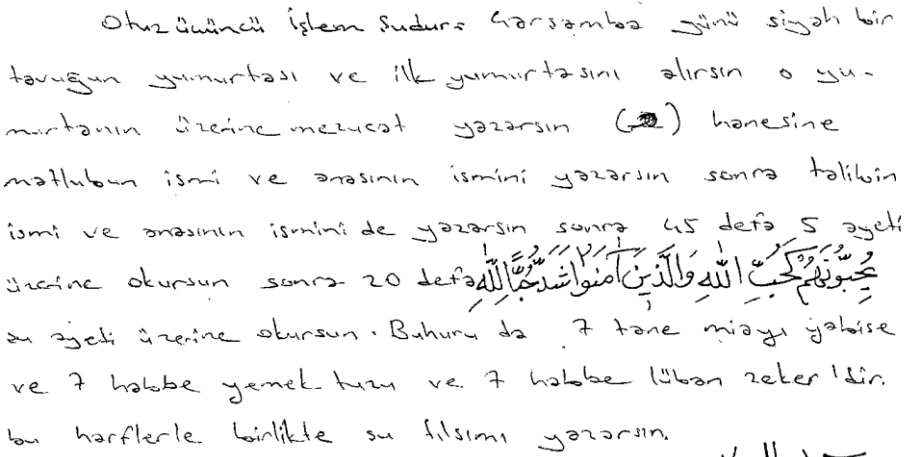 Otuz üçüncü İşlem Şudur: Çarşamba günü siyah bir
tavuğun yumurtası ve ilk yumurtasını alırsın o yu-
murtanın üzerine mezucat yazarsın ( ) hanesine
matlubun ismi ve anasının ismini yazarsın sonra talibin
ismi ve anasının ismini de yazarsın sonra 45 defa 5 ayeti
üzerine okursun sonra 20 defa يُحِبُّونَهُمْ كَحُبِّ اللَّهِ وَالَّذِينَ آمَنُوا أَشَدُّ حُبًّا لِلَّهِ
şu ayeti üzerine okursun. Buhuru da 7 tane miayı yabise
ve 7 habbe yemek tuzu ve 7 habbe lüban zeker 'dir.
bu harflerle birlikte şu tılsımı yazarsın.